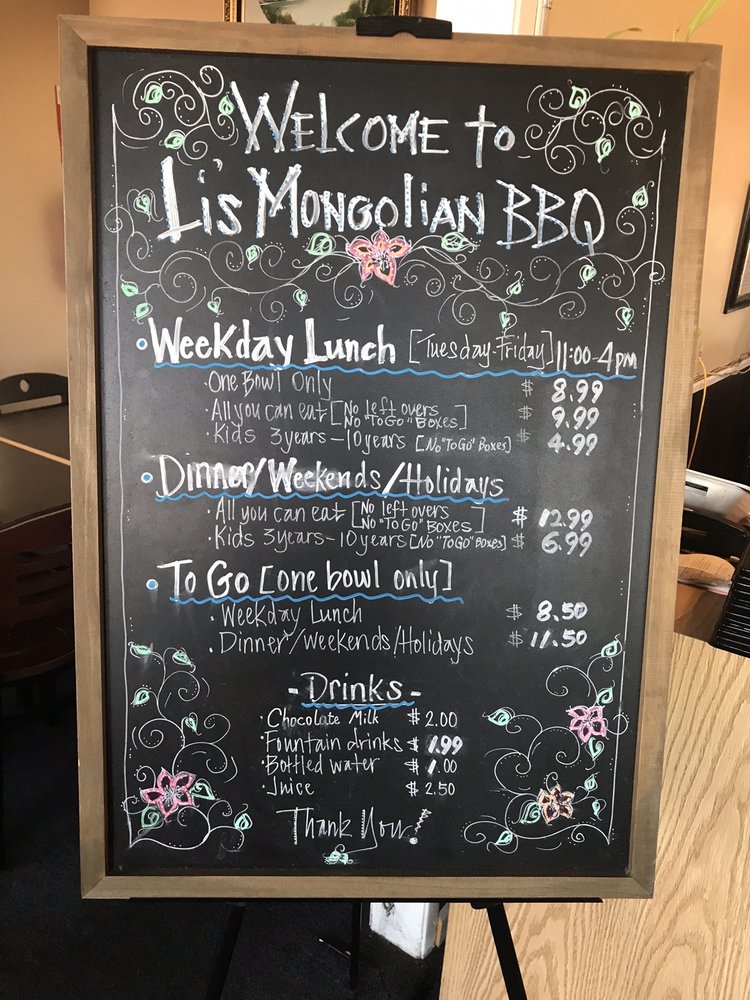 Welcome to
Li's Mongolian BBQ
• Weekday Lunch [Tuesday-Friday] 11:00-4pm
• One Bowl Only $ 8.99
• All you can eat [No left overs $ 9.99
No "To Go" Boxes]
• Kids 3years-10years [No "To Go" Boxes] $ 4.99
• Dinner/Weekends/Holidays
• All you can eat [No left overs $ 12.99
No "To Go" Boxes]
• Kids 3years-10years [No "To Go" Boxes] $ 6.99
• To Go [one bowl only]
• Weekday Lunch $ 8.50
• Dinner/weekends/Holidays $ 11.50
- Drinks -
• Chocolate Milk $ 2.00
• Fountain drinks $ 1.99
• Bottled water $ 1.00
• Juice $ 2.50
Thank You!